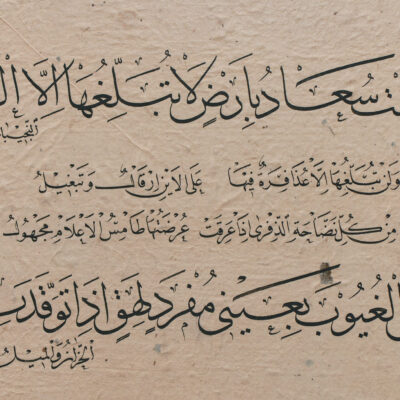 سُعَادُ بِأَرْضٍ لَا تُبَلِّغُهَا إِلَّا
النجيبا
وَلَنْ تُبَلِّغَهَا إِلَّا عُذَافِرَةٌ فِيهَا عَلَى الأَيْنِ إِرْقَالٌ وَتَبْغِيلُ
مِنْ كُلِّ نَضَّاخَةِ الذِّفْرَى إِذَا عَرِقَتْ عُرْضَتُهَا طَامِسُ الأَعْلَامِ مَجْهُولُ
الْغُيُوبَ بِعَيْنَيْ مُفْرَدٍ لَهَقٍ إِذَا تَوَقَّدَتِ
الحُزَّانُ وَالمِيلُ